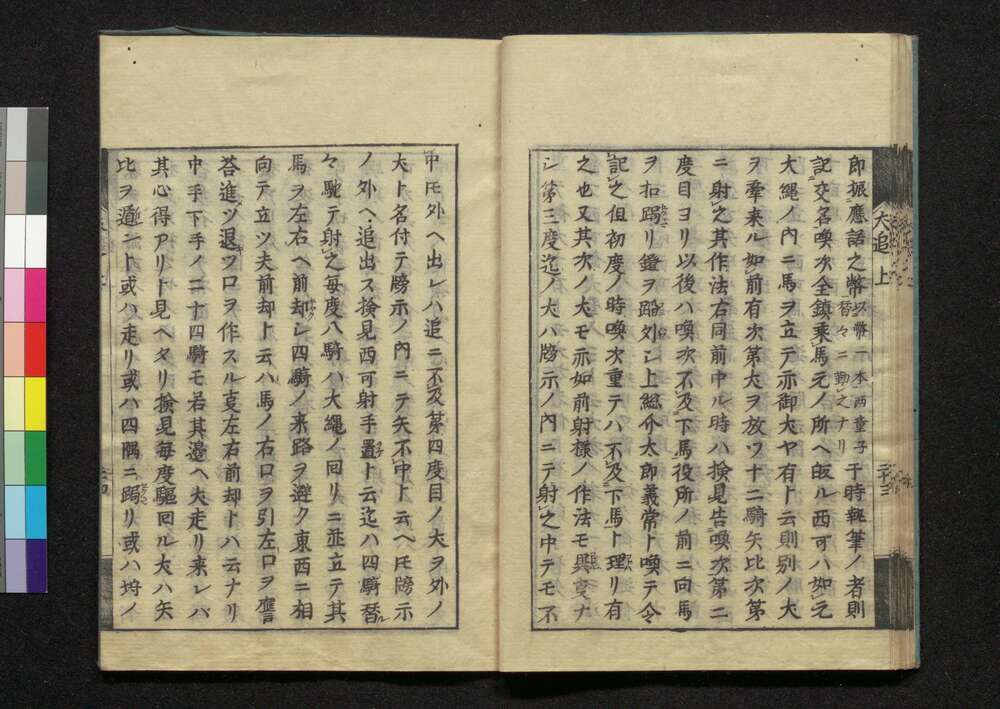 即振應諾之幣 以幣一本両童子替々ニ勤之ナリ 于時執筆ノ者則
記交名喚次全鎮乗馬元ノ所ヘ皈ル西可ハ如元
犬縄ノ内ニ馬ヲ立テ亦御犬ヤ有ト云則別ノ犬
ヲ牽来ル如前有次第犬ヲ放ツ十二騎矢比次第
ニ射之其作法右同前中ル時ハ捡見告喚次第二
度目ヨリ以後ハ喚次不及下馬役所ノ前ニ向馬
ヲ扣蹋リ鐙ヲ踏外シ上総介太郎義常ト喚テ令
記之但初度ノ時喚次重テハ不及下馬ト理リ有
之也又其次ノ犬モ亦如前射様ノ作法モ異変ナ
シ第三度迄ノ犬ハ牓示ノ内ニテ射之中テモ不
犬追 上
二十三
中モ外ヘ出レハ追ニ不及第四度目ノ犬ヲ外ノ
犬ト名付テ牓示ノ内ニテ矢不中ト云ヘモ牓示
ノ外ヘ追出ス捡見西可射手置ト云迄ハ四騎替
々馳テ射之毎度八騎ハ犬縄ノ回リニ並立テ其
馬ヲ左右ヘ前却シ四騎ノ来路ヲ避ク東西ニ相
向テ立ツ夫前却ト云ハ馬ノ右口ヲ引左口ヲ鷹
答進ツ退ツ口ヲ作スル叓左右前却トハ云ナリ
中手下手ノ二十四騎モ若其邉ヘ犬走リ来レハ
其心得アリト見ヘタリ捡見毎度驅回ル犬ハ矢
比ヲ遁ント或ハ走リ或ハ四隅ニ蹋リ或ハ埒ノ